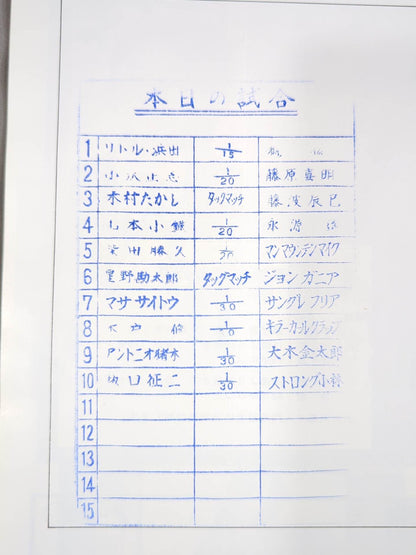 本日の試合
1 リトル・浜田 1/15
2 1/20 藤原喜明
3 木村たかし タッグマッチ 藤波辰巳
4 山本小鉄 1/20 永源
5 柴田勝久 マンマウンテンマイク
6 星野勘太郎 タッグマッチ ジョン ガニア
7 マサ サイトウ 1/30 サングレ フリア
8 キラー・カール・クラップ
9 アントニオ猪木 1/30 大木金太郎
10 坂口征二 1/30 ストロング小林
11
12
13
14
15